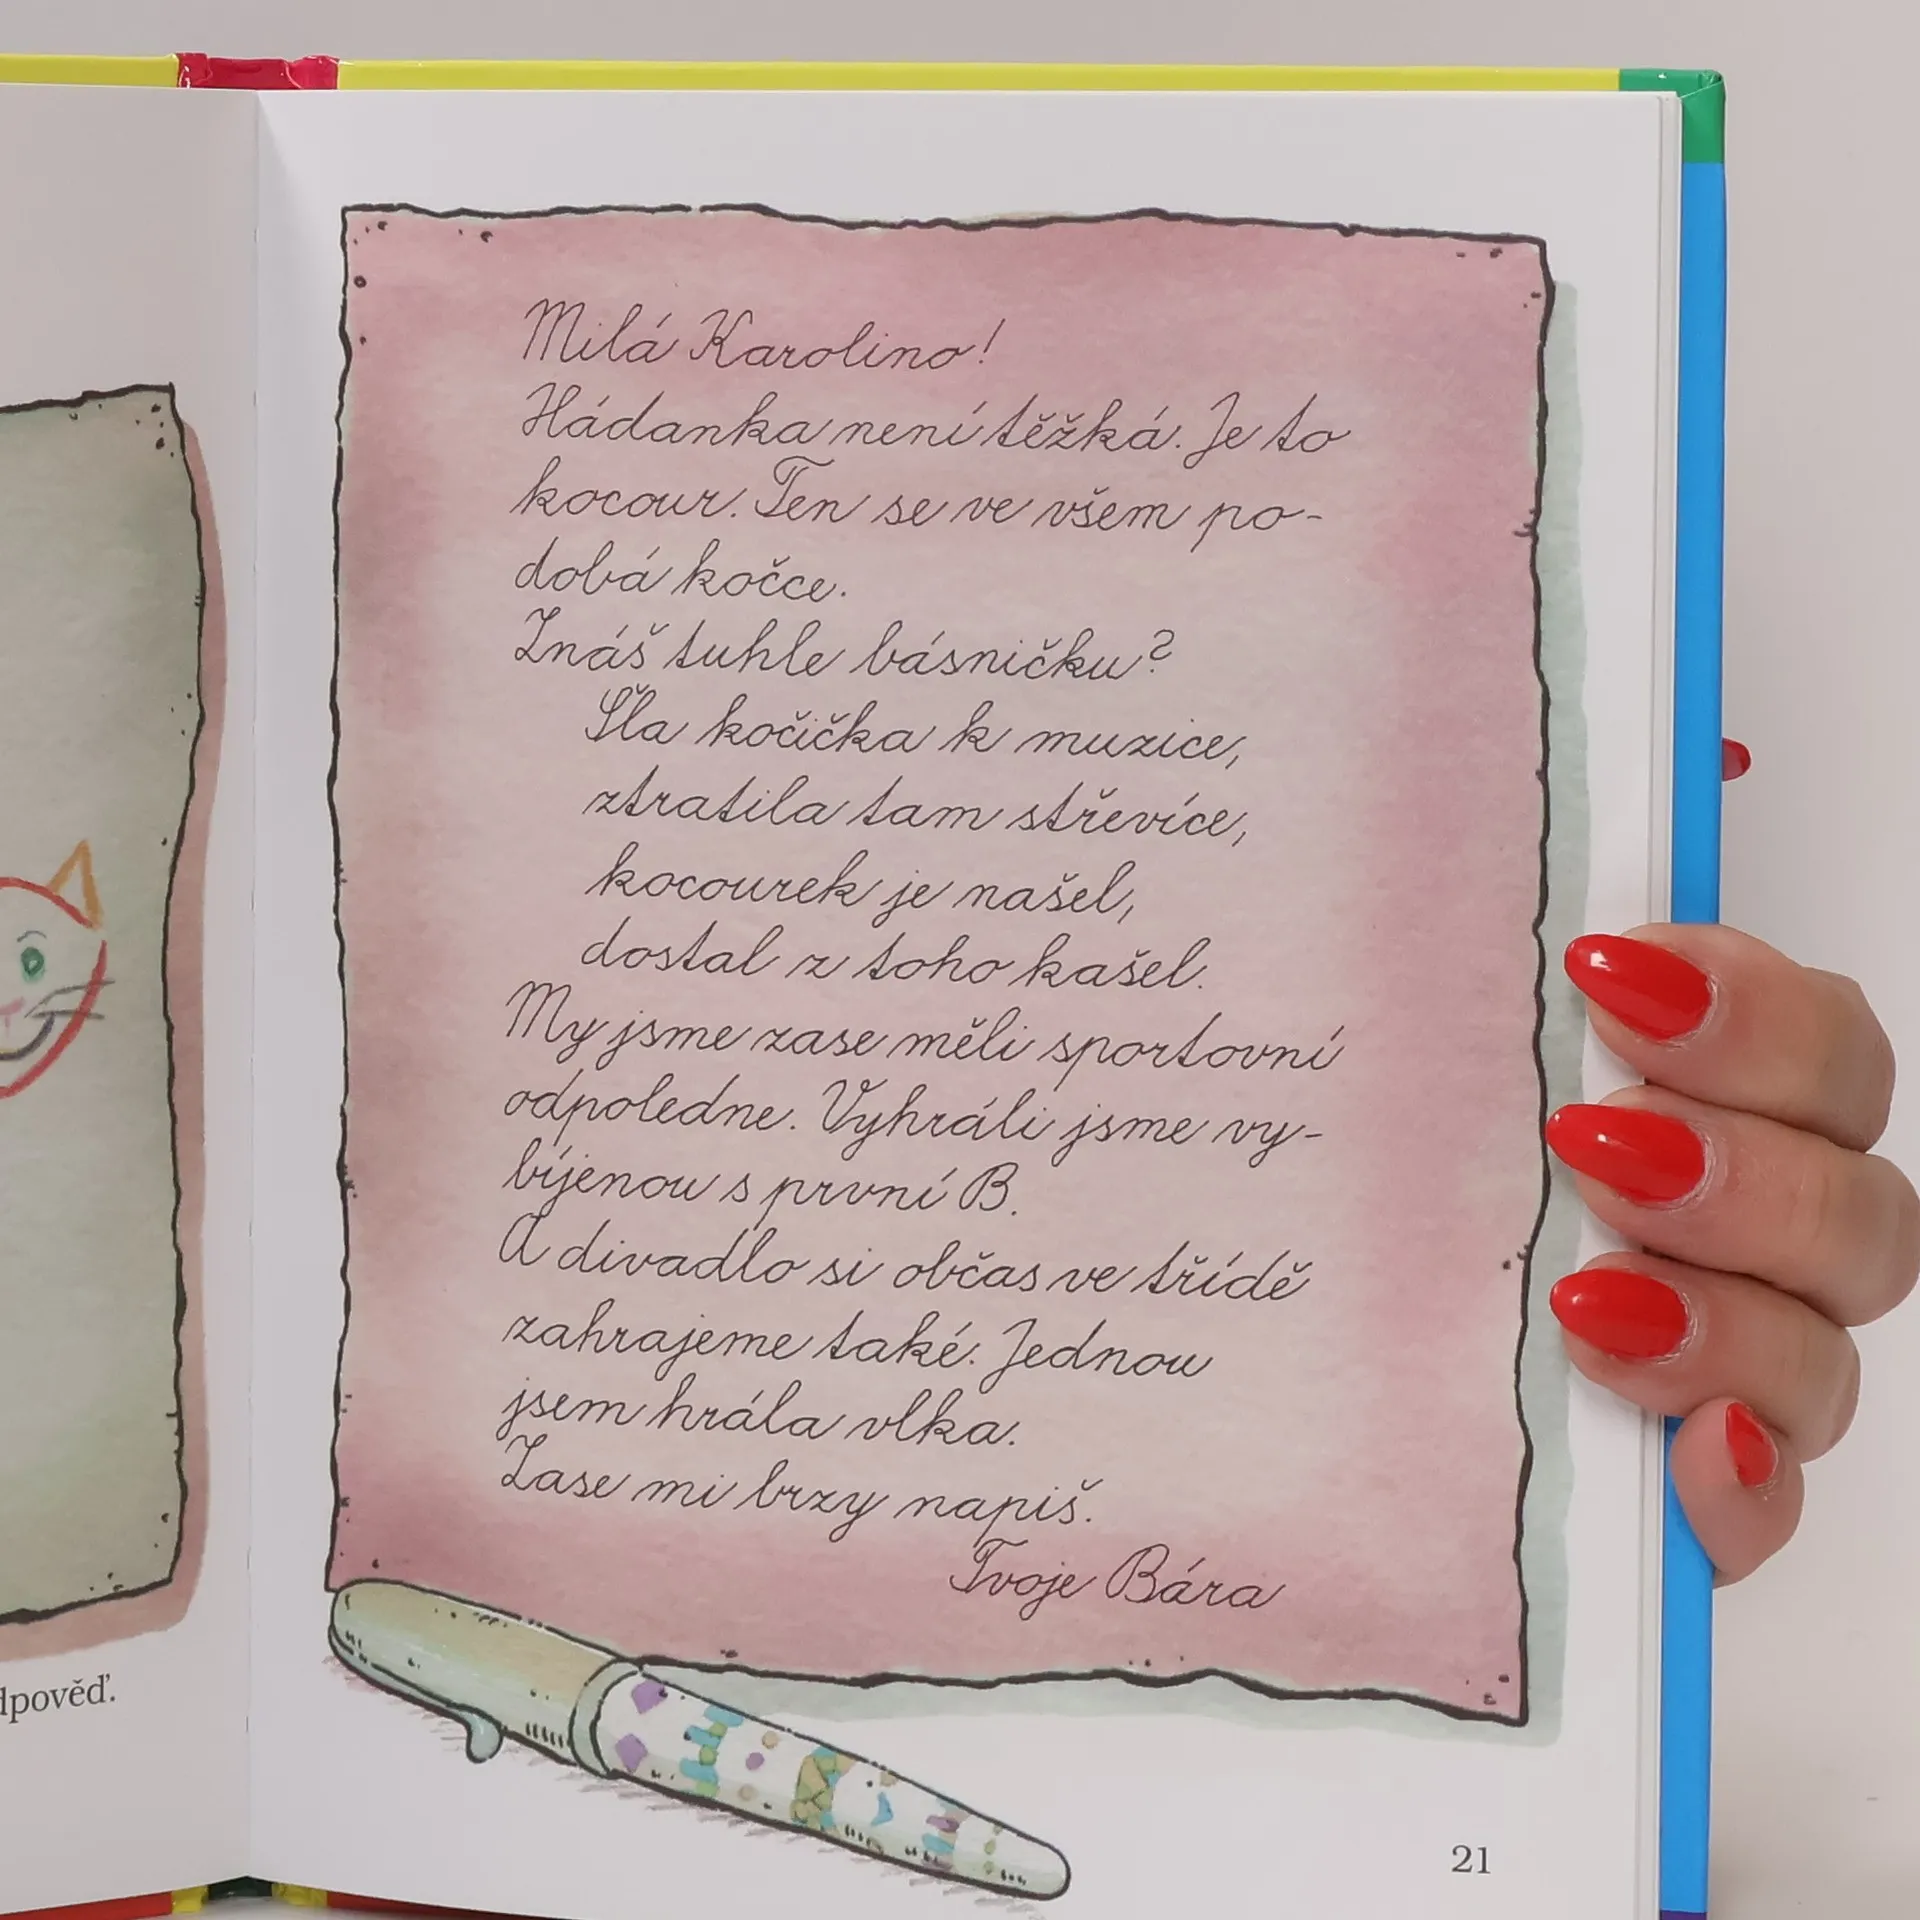 dpověď.
Milá Karolino!
Hádanka není těžká. Je to
kocour. Ten se ve všem po-
dobá kočce.
Znáš tuhle básničku?
Šla kočička k muzice,
ztratila tam střevíce,
kocourek je našel,
dostal z toho kašel.
My jsme zase měli sportovní
odpoledne. Vyhráli jsme vy-
bíjenou s první B.
A divadlo si občas ve třídě
zahrajeme také. Jednou
jsem hrála vlka.
Zase mi brzy napiš.
Tvoje Bára
21